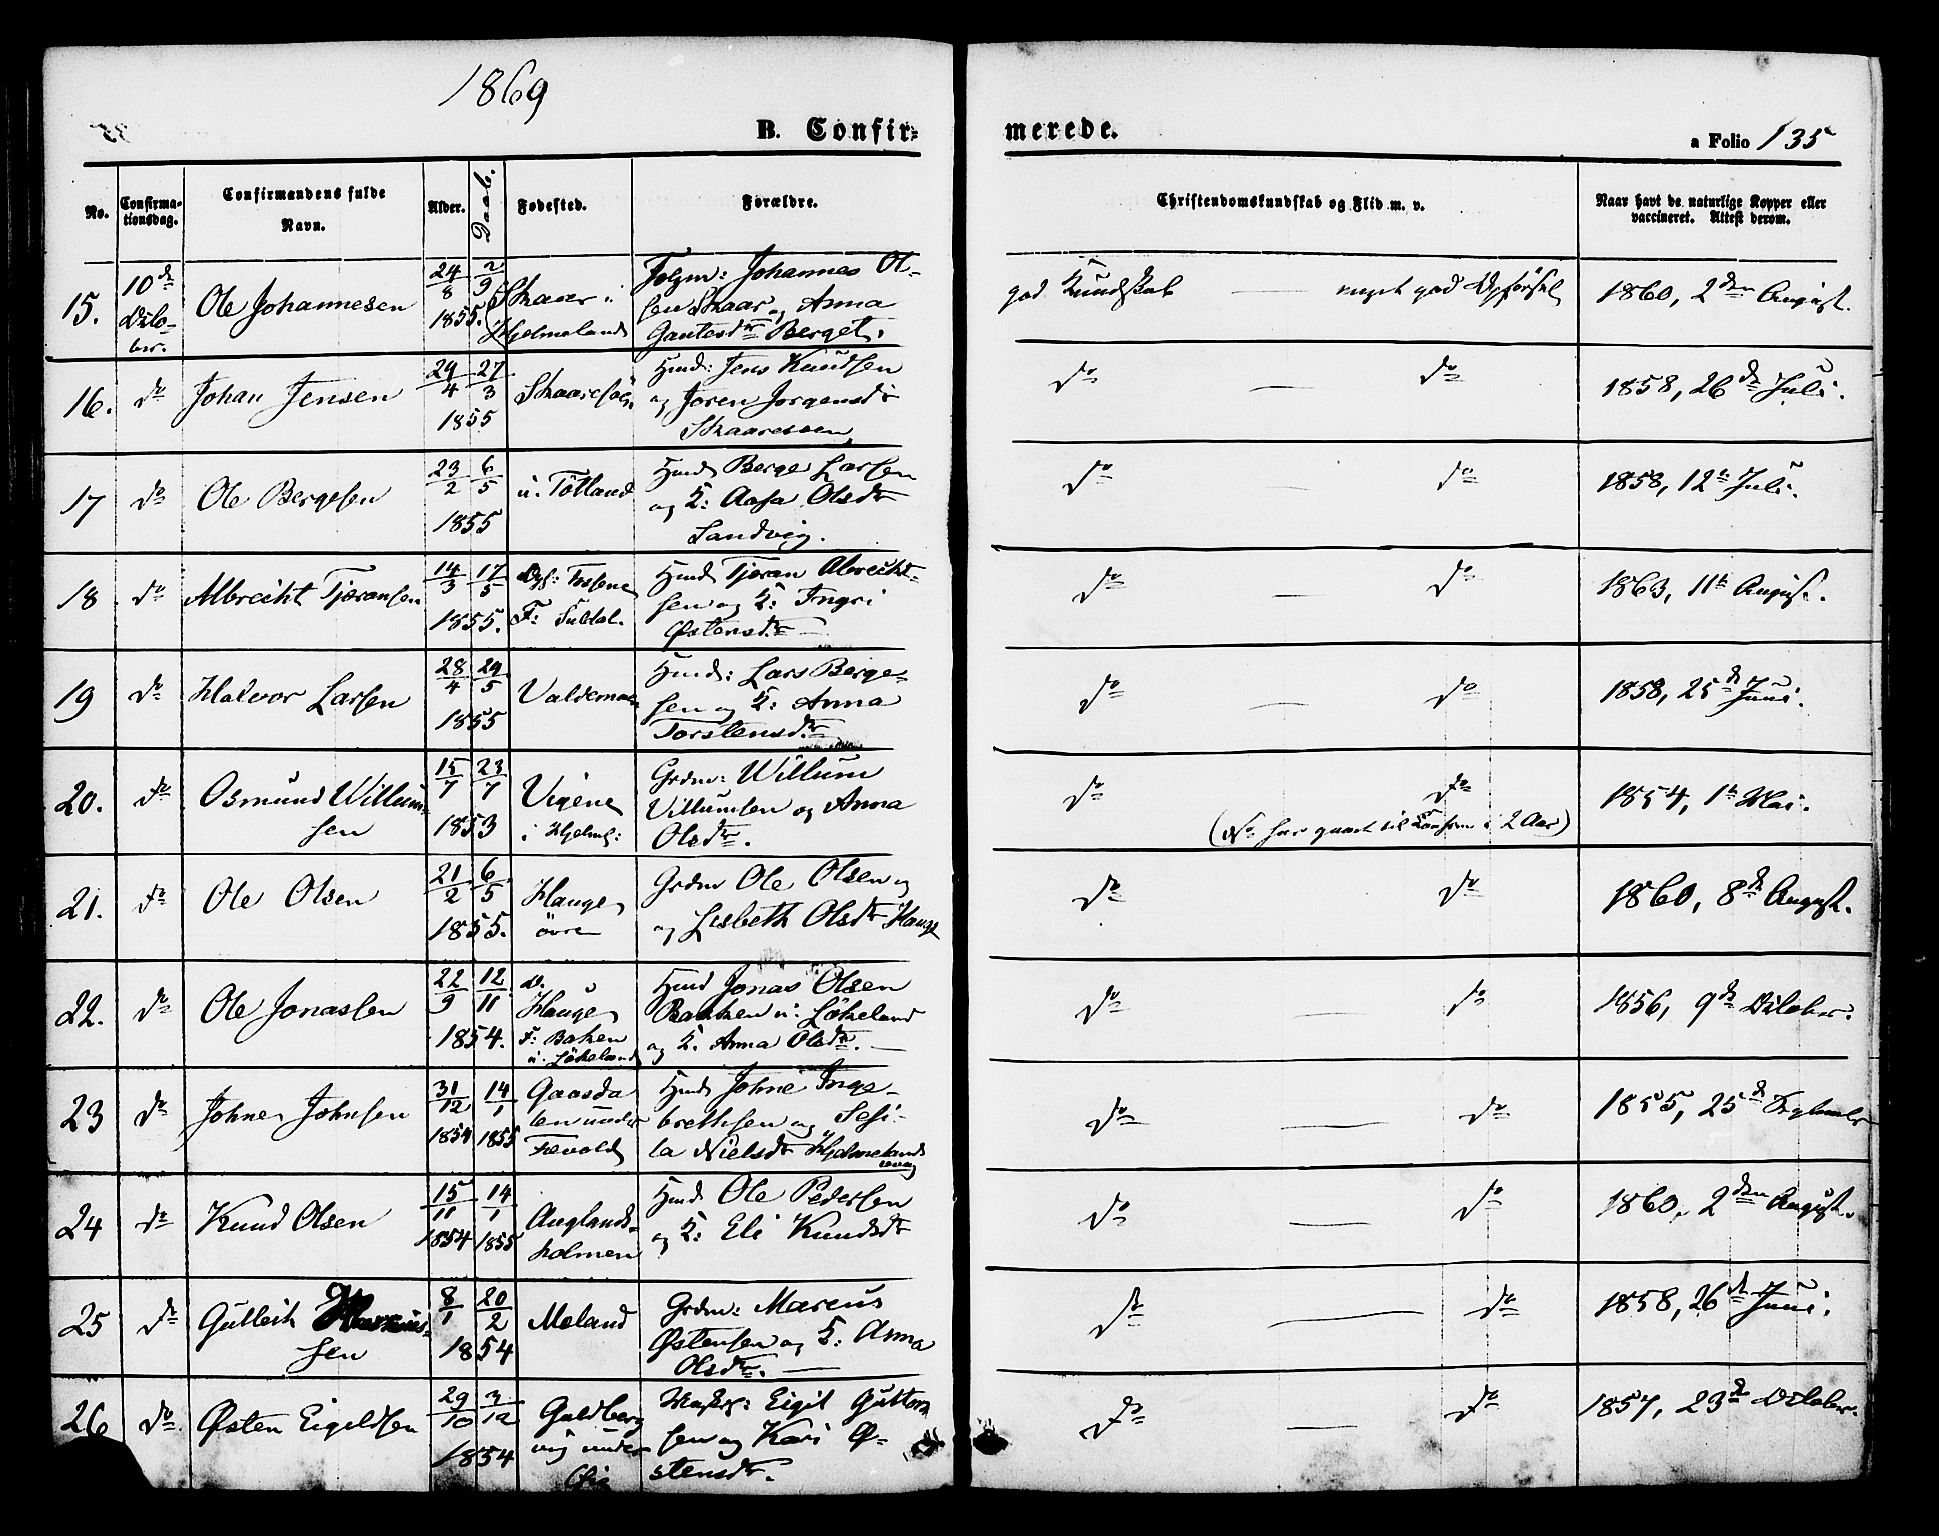 1869
B. Confir-
merede.
a Folio 135
No.
Confirma-
tionsdag.
Confirmandens fulde
Navn.
Alder.
Daab.
Fødested.
Forældre.
Christendomskundskab og Flid m. v.
Naar havt de naturlige Kopper eller
vaccineret. Attest derom.
15. 10de Octo-ber. Ole Johannesen 24/8 2/9 1855. Skaar i Hjelmeland
Folgm: Johannes Ol-
sen Skaar og Anna
Gautesdtr Berget.
god Kundskab — meget god Opførsel 1860, 2den August.
16. do Johan Jensen 29/4 27/3 1855
Hmd: Jens Knudsen
og Joren Jorgensdtr
Skaaresoen
do — do 1858, 26de Juli.
17 do Ole Bergesen 23/2 6/5 1855 u. Totland
Hmd Berge Larsen
og K: Aasa Olsdtr
Sandvig.
do do 1858, 12te Juli.
18 do Albrecht Tjæransen 14/3 17/5 1855. F: Suldal.
Hmd Tjæran Albrecht-
sen og K: Ingri
Østensdtr —
do — do 1863, 11te August.
19 do Halvor Larsen 28/4 29/5 1855
Hmd: Lars Berge-
sen og K: Anna
Torstensdtr
do — do 1858, 25de Juni.
20. do Osmund Willum-
sen 15/7 23/7 1853 Vigene i Hjelml:
Grdm: Willum
Villumsen og Anna
Olsdtr.
do do 1854, 1te Mai.
(No har gaaet til i 2 Aar)
21. do Ole Olsen 21/2 6/5 1855. Hauge øvre
Grdm Ole Olsen og
og Lisbeth Olsdtr Hauge
do do 1860, 8de August.
22. do Ole Jonassen 22/9 12/11 1854. Hauge F: Bakken u. Løkeland
Hmd Jonas Olsen
Bakken u: Løkeland
og K. Anna Olsdtr. —
do — do 1856, 9de October.
23 do Johne Johnsen 31/12 1854 14/1 1855 under
Hmd Johne Inge-
brethsen og Sesi-
la Nielsdtr Hjelmelands
vaag
do — do 1855, 25de September
24 do Knud Olsen 15/11 1854 14/1 1855 Auglands-
holmen
Hmd Ole Pedersen
og K: Eli Knudsdtr
do — do 1860, 2den August.
25 do Gutleik Marcus-
sen 8/1 20/2 1854 Meland
Grdm: Marcus
Østensen og K: Anna
Olsdtr. —
do — do 1858, 26de Juni.
26 do Østen Eigeldsen 29/10 3/12 1854 Guldberg
vig under
Eigil Guttorm
sen og Kari Ø-
stensdtr.
do — do 1857, 23de October.